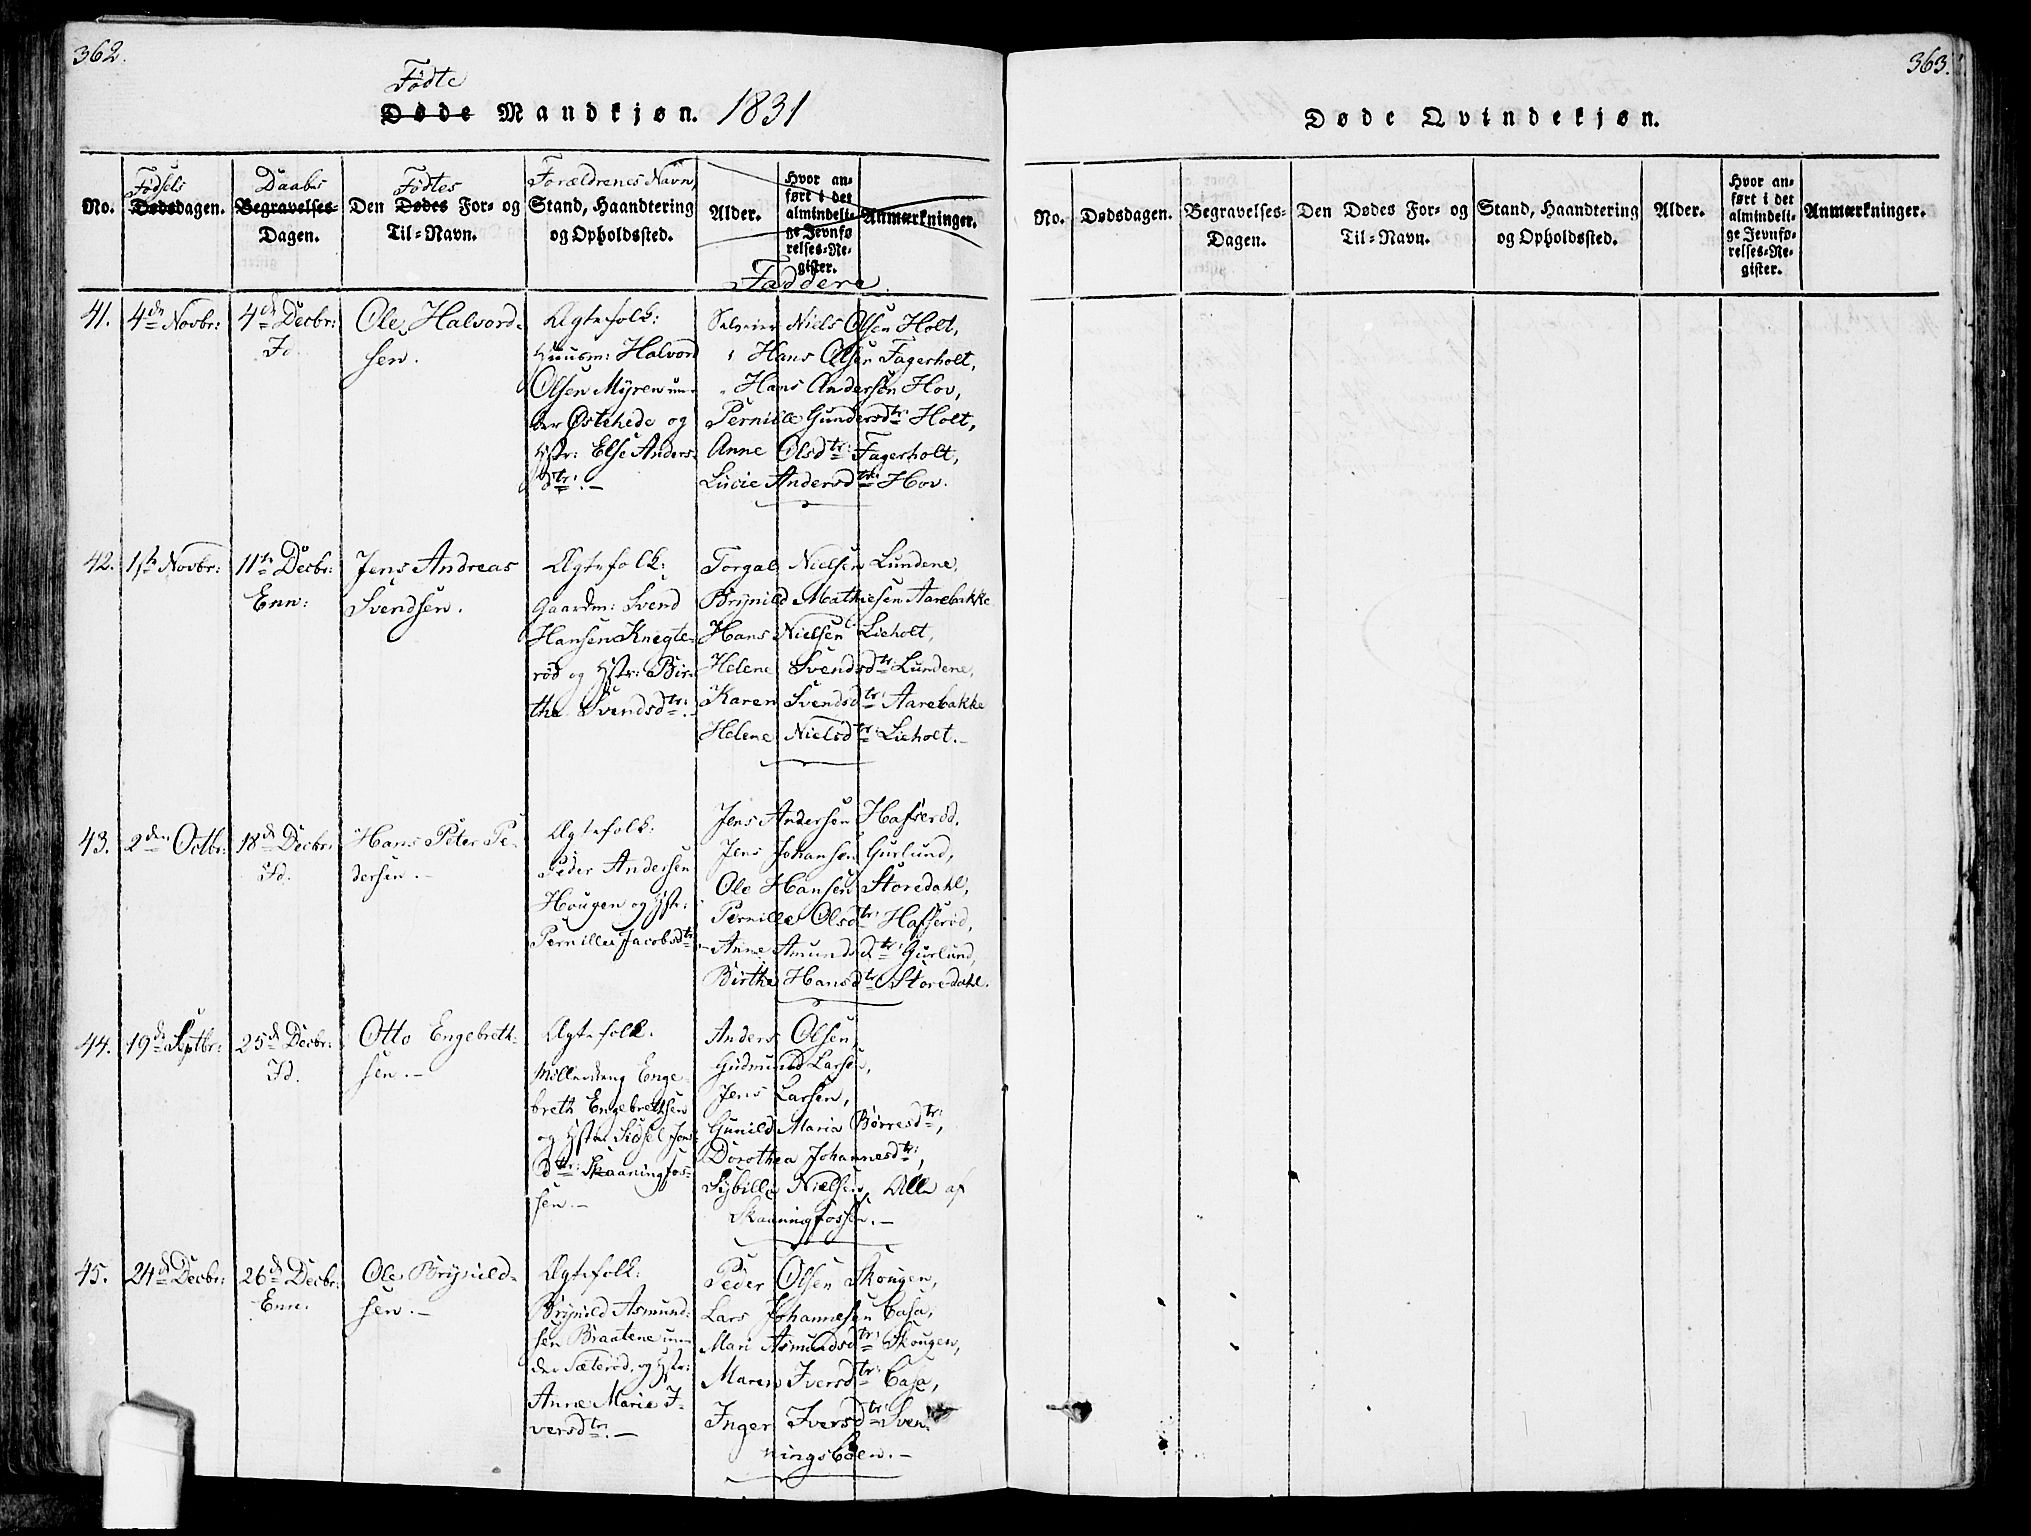 362.
Fødte
Døde Mandkjøn. 1831
No.
Fødsels
Dødsdagen.
Daabs
Begravelses-
Dagen.
Fødtes
Den Dødes For- og
Til-Navn.
Forældrenes Navn,
Stand, Haandtering
og Opholdssted.
Alder.
Hvor an-
ført i det
almindeli-
ge Jevnfø-
relses-Re-
gister.
Anmærkninger.
Faddere.
41. 4de Novbr: 4de Decbr:
Fd.
Ole Halvord-
sen.
Ægtefolk:
Huusm: Halvor
Olsen Myren un-
der Østehede og
Hstr: Else Anders-
dtr: -
Selveier Niels Olsen Holt,
" Hans Olsen Fagerholt,
" Hans Andersen Hov,
Pernille Gundersdtr: Holt,
Anne Olsdtr: Fagerholt,
Lucie Andersdtr: Hov.
42. 1ste Novbr: 11te Decbr:
Enn:
Jens Andreas
Svendsen.
Ægtefolk:
Gaardm: Svend
Hansen Knegte-
rød og Hstr: Bir-
the Svendsdtr: -
Torgal Nielsen Lundene,
Brynild Mathiesen Aarebakke
Hans Nielsen Lieholt,
Helene Svendsdtr: Lundene,
Karen Svendsdtr: Aarebakke
Helene Nielsdtr: Lieholt. -
43. 2den Octbr: 18de Decbr:
Fd.
Hans Peter Pe-
dersen. -
Ægtefolk:
Peder Andersen
Hougen og Hstr:
Pernille Jacobsdtr
Jens Andersen Hafserød,
Jens Johansen Gurlund,
Ole Hansen Storedahl,
Pernille Olsdtr: Hafserød,
Anne Amundsdtr: Gurlund,
Birthe Hansdtr Storedahl.
44. 19de Septbr: 25de Decbr:
Fd.
Otto Engebreth-
sen. -
Ægtefolk.
Mølledreng Enge-
breth Engebrethsen
og Hstr Sidsel Jens-
dtr: Skaaningfos-
sen. -
Anders Olsen,
Gudmund Larsen,
Jens Larsen,
Gunild Maria Børresdtr:,
Dorothea Johannesdtr:,
Sybille Nielsen, Alle af
Skaaningfossen. -
45. 24de Decbr: 26de Decbr:
Enn.
Ole Brynild-
sen. -
Ægtefolk:
Brynild Asmund-
sen Braatene un-
der Sæterød, og Hstr:
Anne Marie I-
versdtr: -
Peder Olsen Skougen,
Lars Johannesen Casa,
Mari Asmundsdtr: Skougen,
Maren Iversdtr: Casa,
Inger Iversdtr: Sven-
ningsbøen. -
363.
Døde Qvindekjøn.
No.
Dødsdagen.
Begravelses-
Dagen.
Den Dødes For- og
Til-Navn.
Stand, Haandtering
og Opholdssted.
Alder.
Hvor an-
ført i det
almindeli-
ge Jevnfø-
relses-Re-
gister.
Anmærkninger.